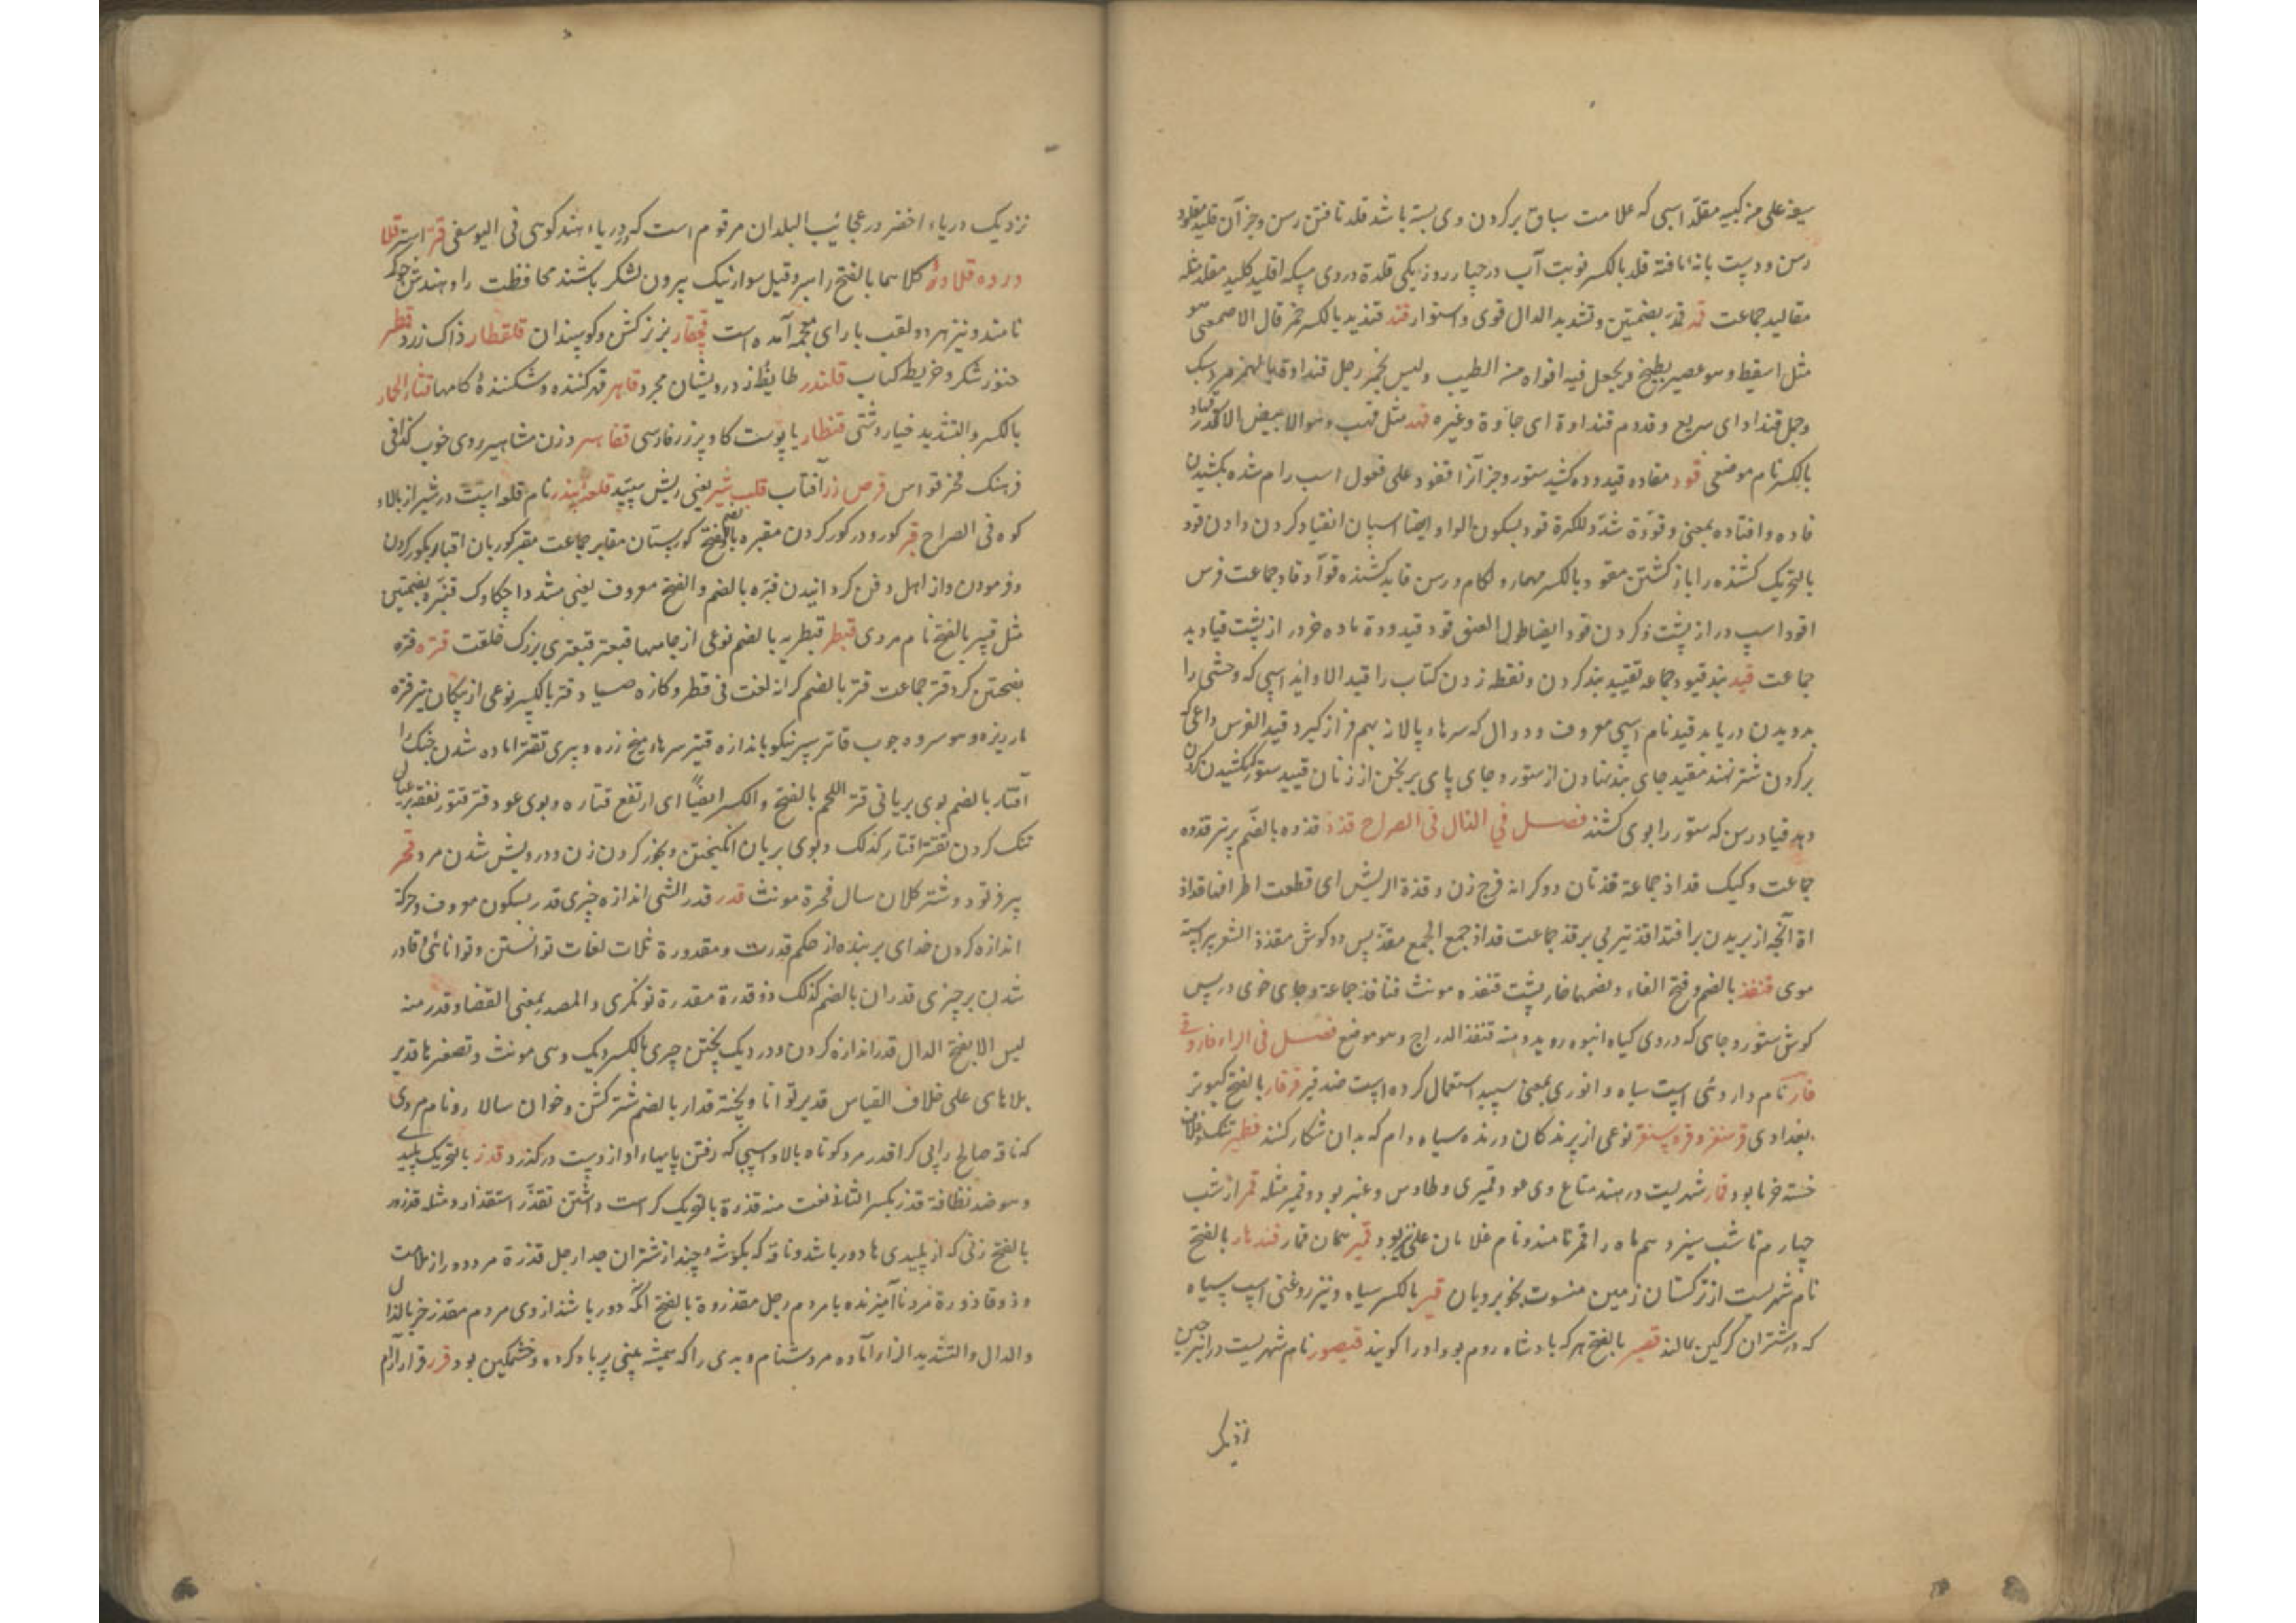 سیفه علی منکبیه مقلد اسبی که علامت سباق بر کردن وی بسته باشد قلد تافتن رسن وجز آن قلید مقلود
رسن ودست بانه تافته قلد بالکسر نوبت آب در چهار روز یکی قلدة دردی مسکه اقلید کلید مقلد مثله
مقالید جماعت قمد قمد بضمتین وتشدید الدال قوی واستوار قند قندید بالکسر خمر قال الاصمعی هو
مثل اسفط وهو عصیر یطبخ ویجعل فیه افواه من الطیب ولیس بخمر رجل قنداوة بالهمز مرد سبک
وجمل قنداو ای سریع وقدوم قنداوة ای حادة وغیره قهد مثل قهب وهو الابیض الاکدر قیاد
بالکسر نام موضعی قود مقاده قیدوده کشیدن ستور وجز آنرا قود علی فعول اسب رام شده بکشیدن
قاده واقتاده بمعنی وقودة شدد للکثرة قود بسکون الواو ایضا اسپان انقیاد کردن دادن قود
بالتحریک کشنده را باز کشتن مقود بالکسر مهار ولکام ورسن قاید کشنده قواد وقاد جماعت فرس
اقود اسب دراز پشت وکردن قود ایضا طول العنق قود قیدودة ماده خر دراز پشت قیادید
جماعت قید بند قیود جماعه تقیید بند کردن ونقطه زدن کتاب را قید الاوابد اسبی که وحشی را
بدویدن دریابد قید نام اسبی معروف ودوال که سرهاء پالان بهم فراز کیرد قید الفرس داغی که
بر کردن شتر نهند مقید جای بند نهادن از ستور وجای پای برنجن از زنان قیید ستور کبکشیدن کردن
دهد قیاد رسن که ستور را بوی کشند فصل فی الذال فی الصراح قذذ قذه بالضم پر تیر قذه
جماعت وکیک قذاذ جماعة قذتان دو کرانه فرج زن وقذة الریش ای قطعت اطرافها قذاذ
اة آنچه از بریدن برافتد اقذ تیر بی پر قذ جماعت قذاذ جمع الجمع مقذ پس دو کوش مقذذ الشعر پیراسته
موی قنفذ بالضم وفتح الفاء وبضمها خارپشت قنفذه مونث قنافذ جماعة وجای خوی در پس
کوش ستور وجای که در وی کیاه انبوه روید ومنه قنفذ الدراج وهو موضع فصل فی الراء فاروقی
قار نام داروئی است سیاه وانوری بمعنی سپید استعمال کرده است ضد قیر قرقار بالفتح کبوتر
بغدادی قرسنقر وقره سنقر نوعی از پرندکان درنده سیاه دام که بدان شکار کنند قطمیر تنک
خسته خرما بود قمار شهریست در هند متاع وی عود وقمیری وطاوس وعنبر بود وقمیر مثله قمر از شب
چهارم تا شب سیزدهم ماه را قمر نامند ونام غلامان علی نیز بود قنبر همان قمار قندهار بالفتح
نام شهریست از ترکستان زمین منسوب بخوبرویان قیر بالکسر سیاه ونیز روغنی است سیاه
که در شتران کرکین بمالند قیصر بالفتح هر که بادشاه روم بود او را کویند قیصور نام شهریست
نزدیک
نزدیک دریاء اخضر در عجائب البلدان مرقوم است که در دریاء هند کوهی فی الیوسفی استر
کلاهما بالفتح راهبر وقیل سوارنیک بیرون لشکر باشند محافظت را وهندش
نامند ونیز هر دو لقب با رای معجمه آمده است قچقار بز نرکشن وکوسپندان قلقطار زاک زرد قطر
هنوز شکر وخریطه کباب قلندر طایفه از درویشان مجرد قاهر قهر کننده وشکننده کامها قثاء الحمار
بالکسر والتشدید خیار دشتی قنطار یا پوست کاو پر زر فارسی وزن مشاهیر روی خوب کذا فی
فرهنک فخر قواس قرص زر آفتاب قلب شیر یعنی ریش سپید قلعه بندر نام قلعه است در شیراز بالاء
کوه فی الصراح قبر کور ودر کور کردن مقبره بالفتح کورستان مقابر جماعت مقبر کوربان اقبار بکور کردن
وفرمودن واز اهل دفن کردانیدن قبره بالضم والفتح معروف یعنی مشدد اچکاوک قنبر وبضمتین
مثل قنبر بالفتح نام مردی قبطر قبطریه بالضم نوعی از جامها قبعتر قبعتری بزرک خلقت قتره قتره
بضمتین کرد قتر جماعت قتر بالضم کرانه لغت فی قطر وکازه صیاد قتر بالکسر نوعی از پیکان تیر قتره
مار ریزه وهو سروه چوب قاتر سپر نیکو باندازه قتیر سرهاء میخ زره وپیری تقتر آماده شدن جنک را
اقتار بالضم بوی بریانی قتر اللحم بالفتح والکسر ایضاً ای ارتفع قتاره وبوی عود قتر قتور نفقه بر عیال
تنک کردن تقتیر اقتار کذلک وبوی بریان انکیختن وبخور کردن زن ودرویش شدن مرد قحر
پیر فرتود وشتر کلان سال قحرة مونث قدر قدر الشی اندازه چیزی قدر بسکون معروف وحرکة
اندازه کردن خدای بر بنده از حکم قدرت ومقدورة ثلاث لغات توانستن وتوانائی وقادر
شدن بر چیزی قدران بالضم کذلک ذو قدرة مقدرة توانکری والمصدر بمعنی القضا وقدر منه
لیس الا بفتح الدال قدر اندازه کردن ودر دیک پختن چیزی بالکسر دیک وهی مونث وتصغیرها قدیر
بلا های علی خلاف القیاس قدیر توانا وپخته قدار بالضم شتر کشن وخوان سالار ونام مردی
که ناقه صالح را پی کرد اقدر مرد کوتاه بالا واسبی که رفتن پایهاء او از دست درکذرد قذر بالتحریک پلیدی
وهو ضد نظافة قذر بکسر الثانی نعت منه قذرة بالتحریک کراهت داشتن تقذر استقذار ومثله قذور
بالفتح زنی که از پلیدی ها دور باشد وناقه که بکوشه چند از شتران جدا رجل قذرة مرد دور از ملامت
وذو قاذورة مرد ناآمیزنده با مردم رجل مقذروة بالفتح آنکه دور باشد از وی مردم مقذر خر بالذال
والدال والتشدید الراء آماده مر دشنام وبدی را که همیشه بینی پر باد کرده وخشمکین بود قرر قرار آرام